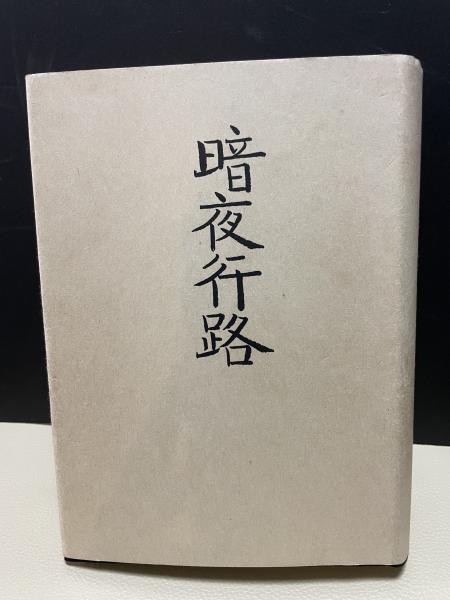 暗夜行路